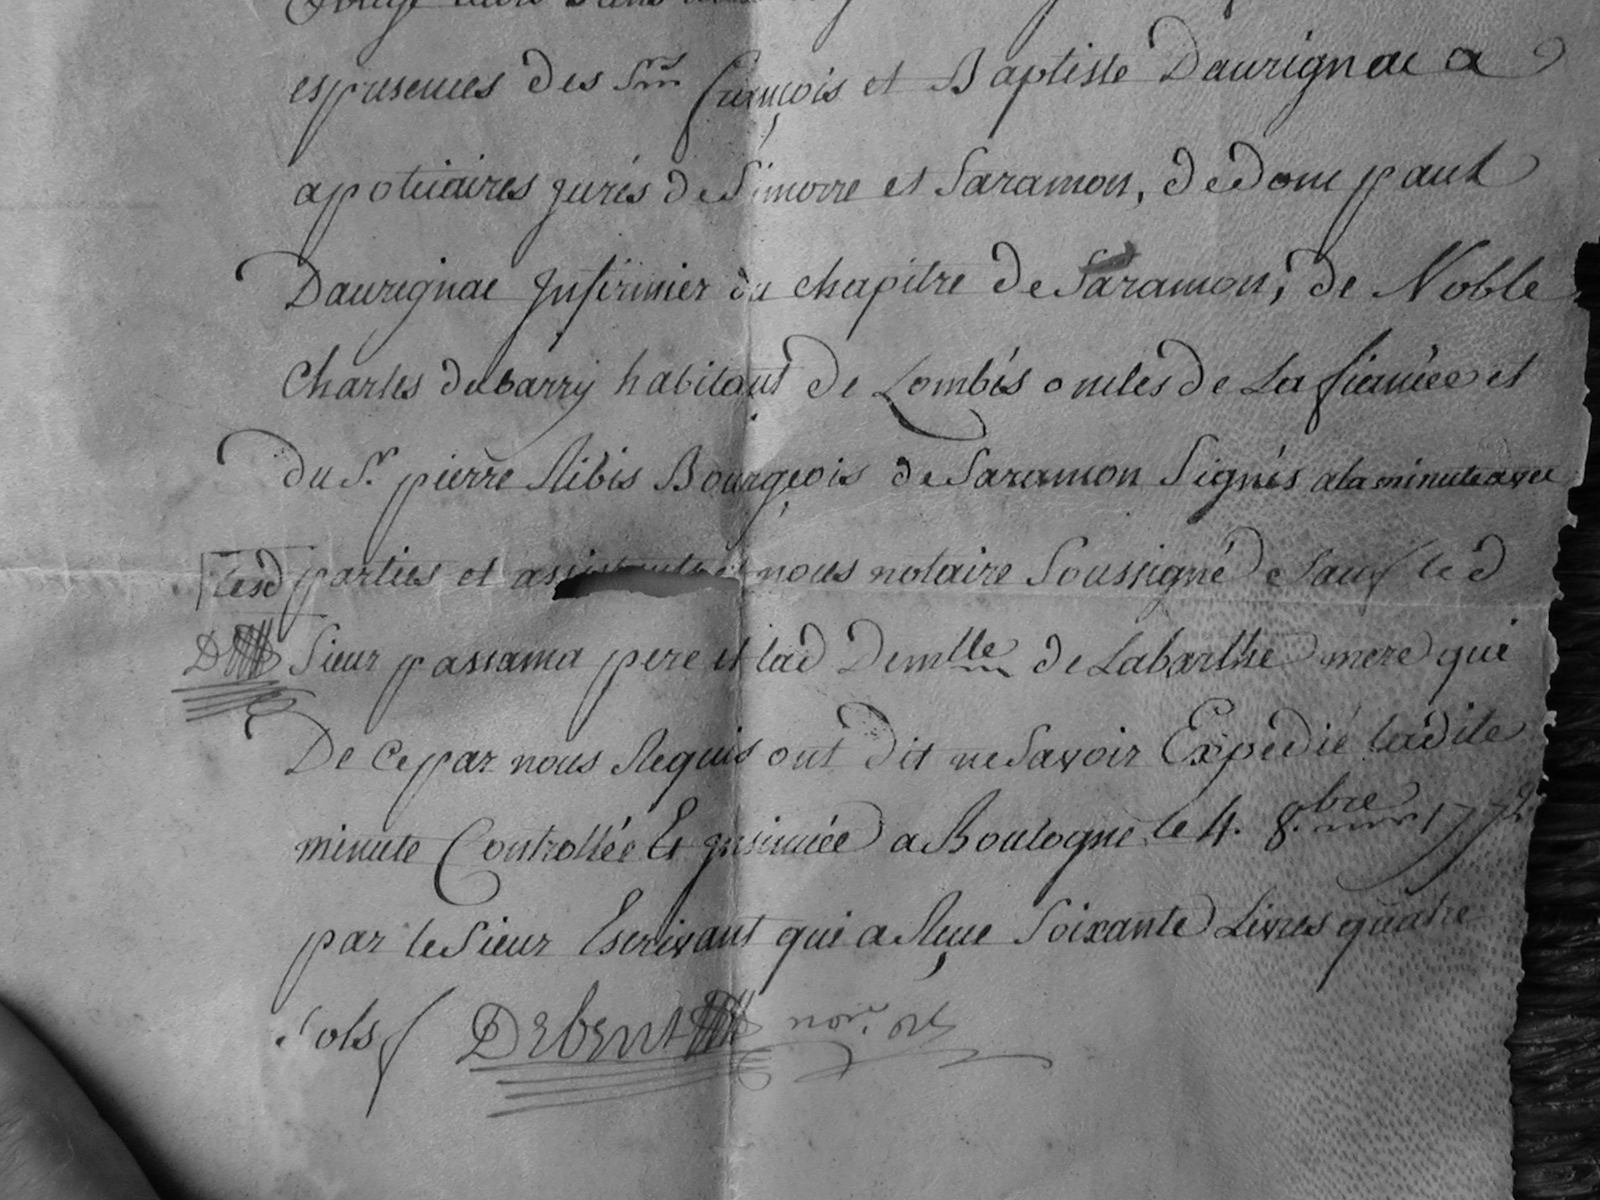 espresences des Srs françois et Baptiste Daurignac a
apoticaires jurés de Simorre et Saramon, de dom paul
Daurignac Infirmier du chapitre de Saramon, de Noble
Charles dubarry habitant de Lombés oncles de La fiancée et
du Sr. pierre Ribis Bourgeois de Saramon Signés a la minute avec
lesd parties et assistants et nous notaire Soussigné de Sauf led
Sieur passama pere et lad Demlle de Labarthe mere qui
De ce par nous Requis ont dit ne Savoir Expedié ladite
minute Controllée Et Insinuée a Boulogne le 4. 8.bre 1772
par le Sieur Escrivant qui a Reçue Soixante Livres quatre
Sols Debent nore.